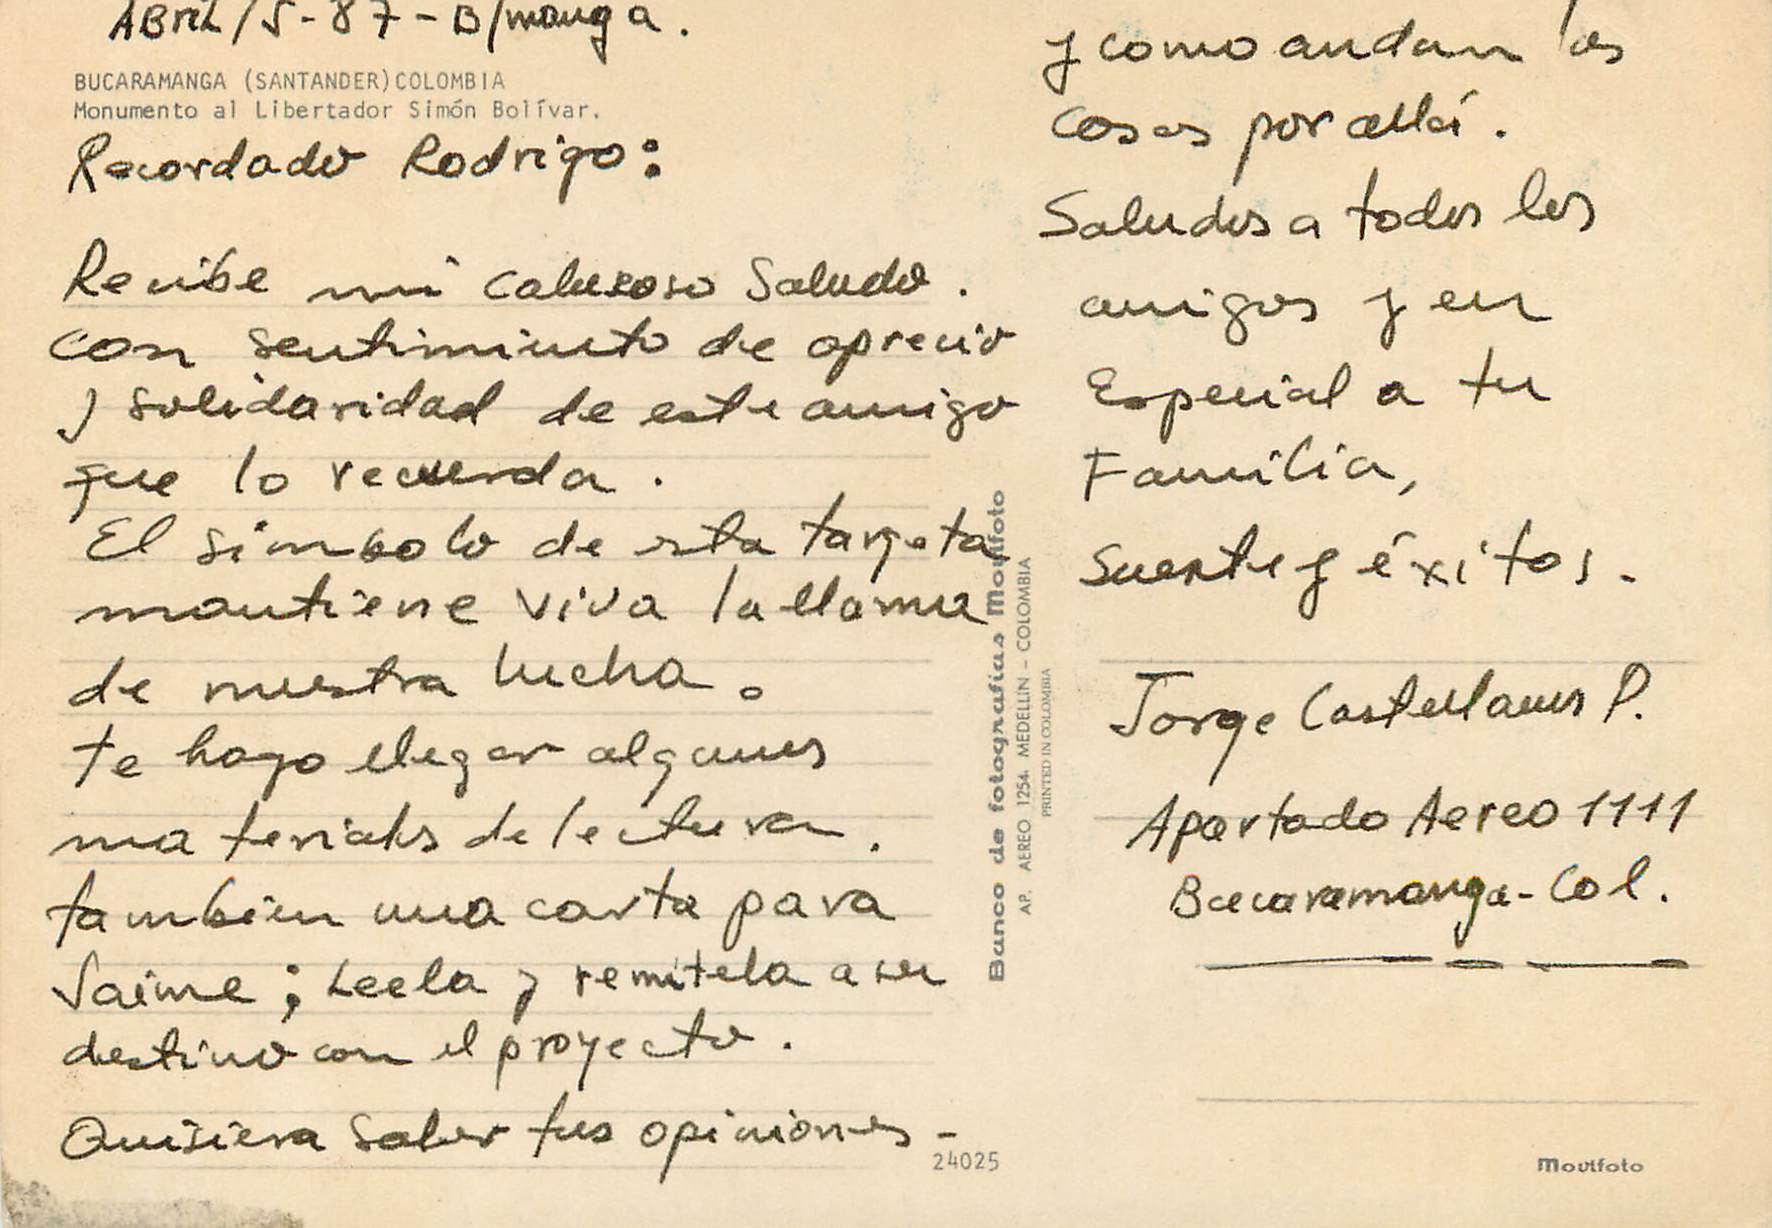 ABRIL/5-87-B/manga.
BUCARAMANGA (SANTANDER) COLOMBIA
Monumento al Libertador Simón Bolívar.
Recordado Rodrigo:
Recibe mi caluroso Saludo.
con sentimiento de aprecio
y solidaridad de este amigo
que lo recuerda.
El simbolo de esta targeta
mantiene viva la llama
de nuestra lucha.
te hago llegar algunos
materiales de lectura.
tambien una carta para
Jaime; Leela y remitela a su
destino con el proyecto.
Quisiera saber tus opiniones-
24025
Banco de fotografías Movifoto
AP. AEREO 1254. MEDELLIN - COLOMBIA
PRINTED IN COLOMBIA
y como andan las
cosas por allá.
Saludos a todos los
amigos y en
Especial a tu
Familia,
Suerte y éxitos.
Jorge Castellanos P.
Apartado Aereo 1111
Bucaramanga-Col.
Movifoto